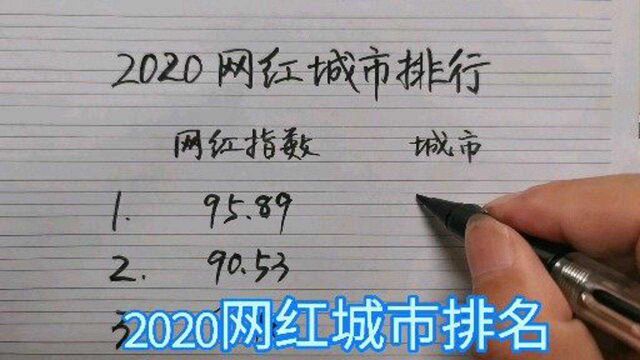 2020网红城市排行
网红指数 城市
1. 95.89
2. 90.53
3
2020网红城市排名